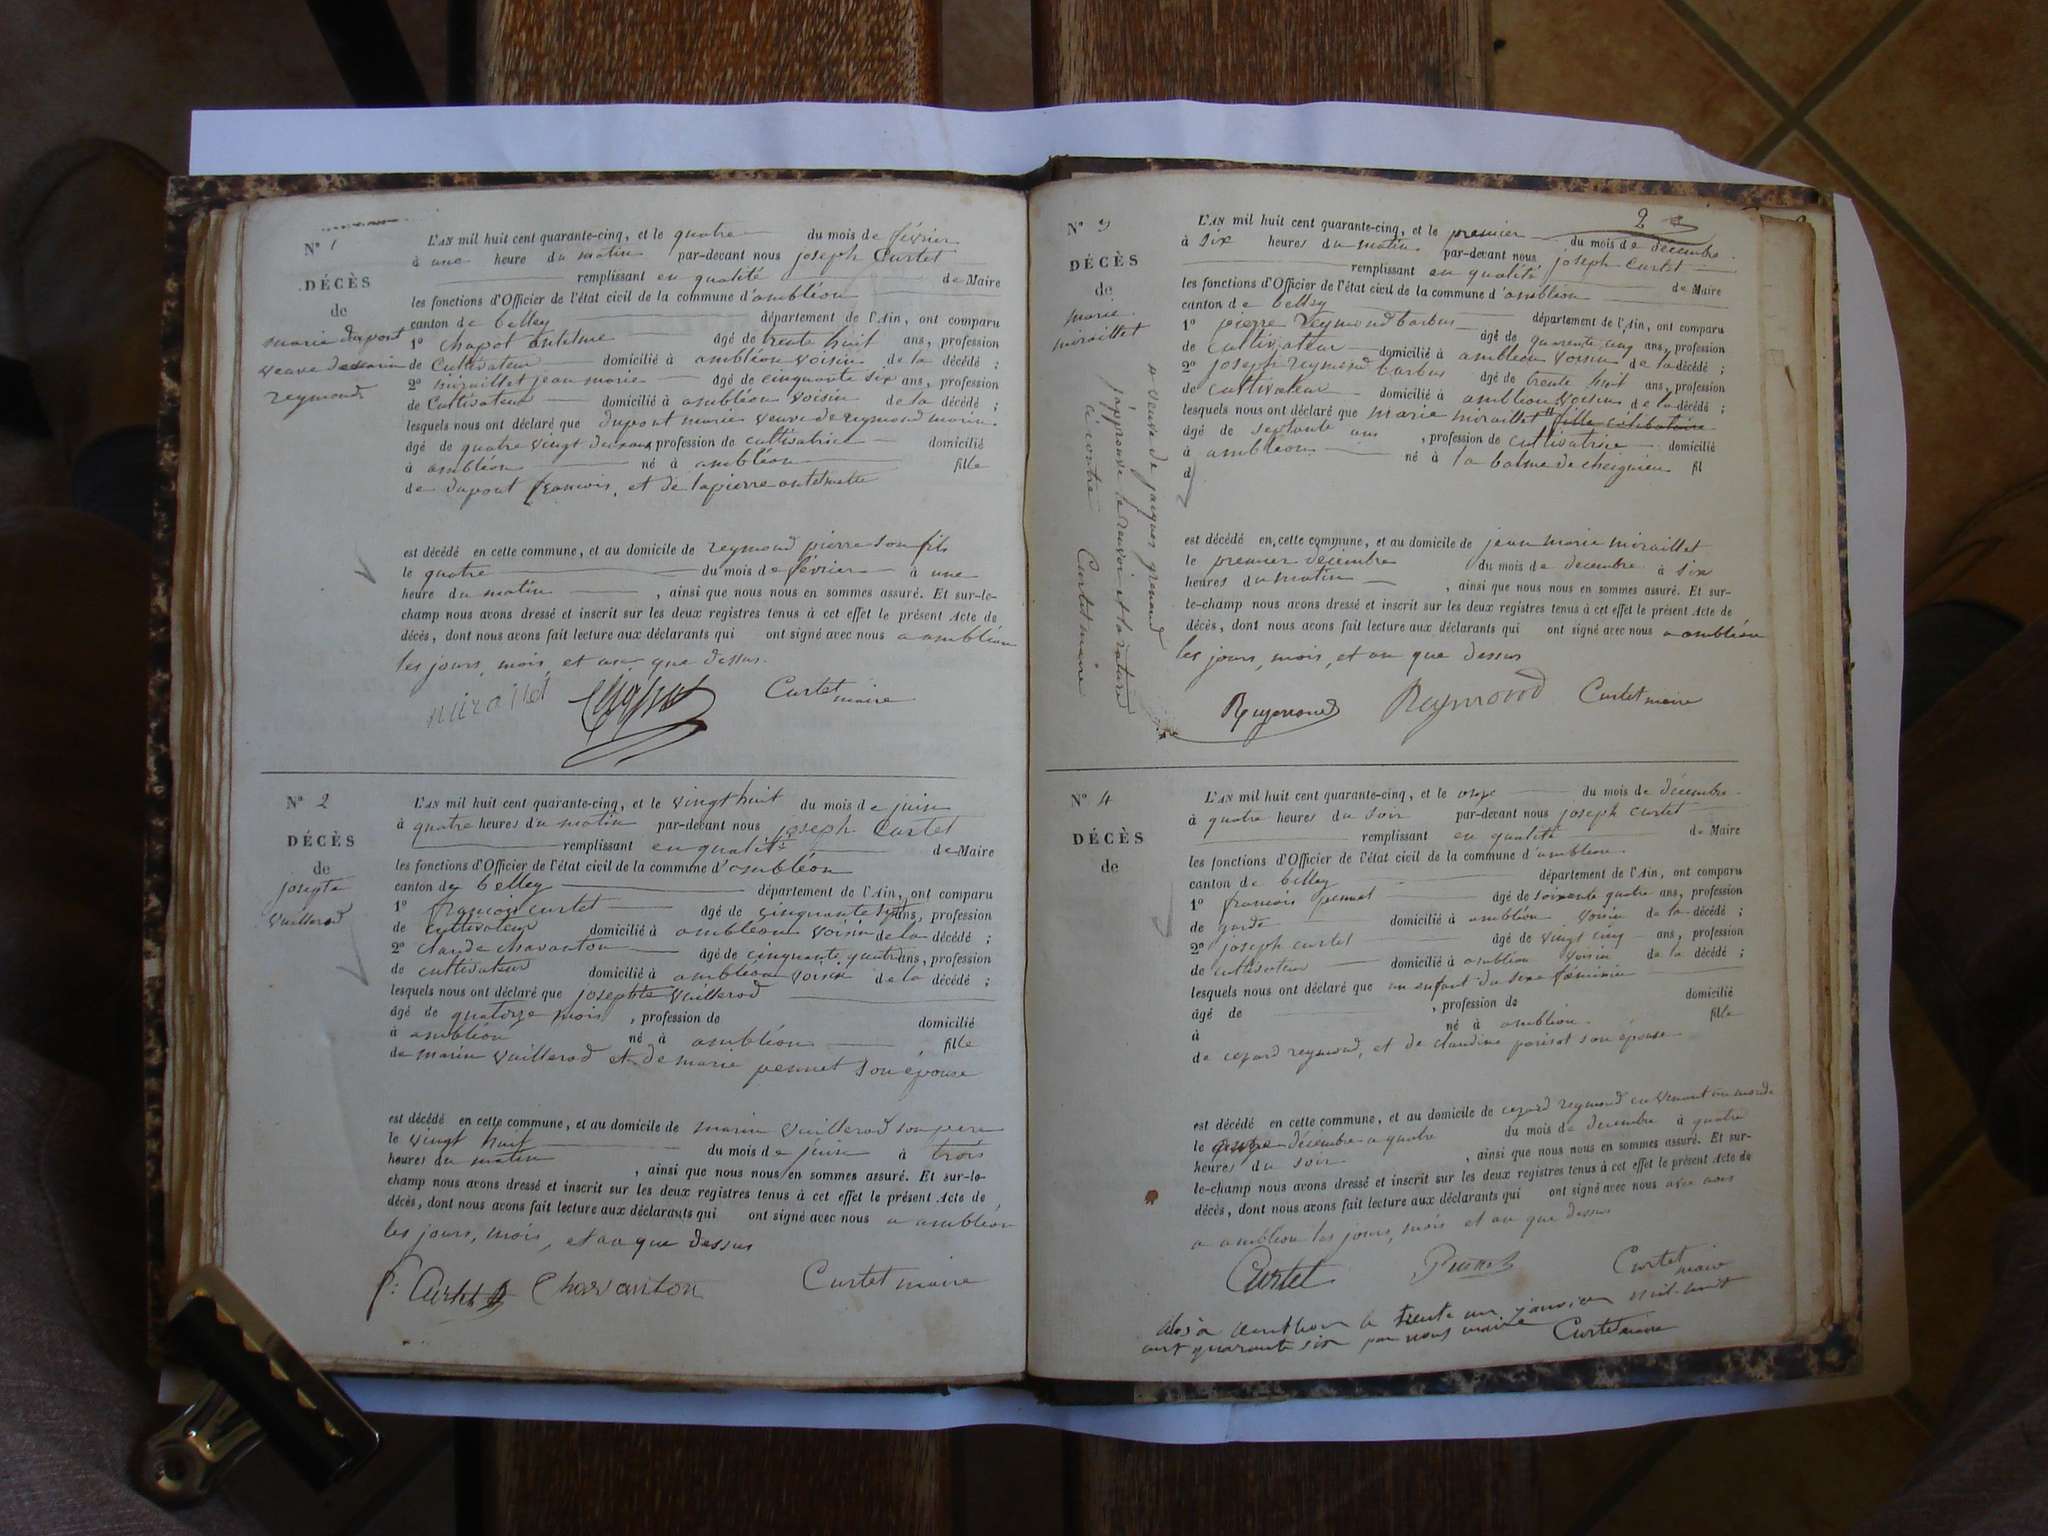 N° 1
DÉCÈS
de
marie dupont
veuve de marin
reymond
L'AN mil huit cent quarante-cinq, et le quatre du mois de février
à une heure du matin par-devant nous joseph Curtet
remplissant en qualité de Maire
les fonctions d'Officier de l'état civil de la commune d'ambléon
canton de belley département de l'Ain, ont comparu
1° chapot antelme âgé de trente huit ans, profession
de Cultivateur domicilié à ambléon voisin de la décédé ;
2° miraillet jean marie âgé de cinquante six ans, profession
de Cultivateur domicilié à ambléon voisin de la décédé ;
lesquels nous ont déclaré que dupont marie veuve de reymond marin
âgé de quatre vingt deux ans, profession de cultivatrice domicilié
à ambléon né à ambléon fille
de dupont françois, et de lapierre antelmette
est décédé en cette commune, et au domicile de reymond pierre son fils
le quatre du mois de février à une
heure du matin , ainsi que nous nous en sommes assuré. Et sur-le-
champ nous avons dressé et inscrit sur les deux registres tenus à cet effet le présent Acte de
décès, dont nous avons fait lecture aux déclarants qui ont signé avec nous a ambléon
les jours, mois, et an que dessus.
Curtet
maire
N° 2
DÉCÈS
de
josephte
vuillerod
L'AN mil huit cent quarante-cinq, et le vingt huit du mois de juin
à quatre heures du matin par-devant nous joseph Curtet
remplissant en qualité de Maire
les fonctions d'Officier de l'état civil de la commune d'ambléon
canton de belley département de l'Ain, ont comparu
1° françois curtet âgé de cinquante sept ans, profession
de cultivateur domicilié à ambléon voisin de la décédé ;
2° claude chavanton âgé de cinquante quatre ans, profession
de cultivateur domicilié à ambléon voisin de la décédé ;
lesquels nous ont déclaré que josephte vuillerod
âgé de quatorze mois , profession de domicilié
à ambléon né à ambléon fille
de marin vuillerod et de marie pennet son épouse
est décédé en cette commune, et au domicile de marin vuillerod son père
le vingt huit du mois de juin à trois
heures du matin , ainsi que nous nous en sommes assuré. Et sur-le-
champ nous avons dressé et inscrit sur les deux registres tenus à cet effet le présent Acte de
décès, dont nous avons fait lecture aux déclarants qui ont signé avec nous a ambléon
les jours, mois, et an que dessus
f: Curtet Chavanton Curtet maire
2
N° 3
DÉCÈS
de
marie
miraillet
veuve de jacques gremond
j'approuve le renvoi et la rature
ci contre Curtet maire
L'AN mil huit cent quarante-cinq, et le premier du mois de décembre
à six heures du matin par-devant nous joseph curtet
remplissant en qualité de Maire
les fonctions d'Officier de l'état civil de la commune d'ambléon
canton de belley département de l'Ain, ont comparu
1° pierre reymond barbus âgé de quarente cinq ans, profession
de cultivateur domicilié à ambléon voisin de la décédé ;
2° joseph reymond barbus âgé de trente huit ans, profession
de cultivateur domicilié à ambléon voisin de la décédé ;
lesquels nous ont déclaré que marie miraillet fille célibataire
âgé de septante ans , profession de cultivatrice domicilié
à ambléon né à la balme de cheignieu fil
d
est décédé en cette commune, et au domicile de jean marie miraillet
le premier décembre du mois de decembre à six
heures du matin , ainsi que nous nous en sommes assuré. Et sur-
le-champ nous avons dressé et inscrit sur les deux registres tenus à cet effet le présent Acte de
décès, dont nous avons fait lecture aux déclarants qui ont signé avec nous a ambléon
les jours, mois, et an que dessus
Reymond Reymond Curtet maire
N° 4
DÉCÈS
de
L'AN mil huit cent quarante-cinq, et le onze du mois de décembre
à quatre heures du soir par-devant nous joseph curtet
remplissant en qualité de Maire
les fonctions d'Officier de l'état civil de la commune d'ambléon
canton de belley département de l'Ain, ont comparu
1° francois pennet âgé de soixante quatre ans, profession
de garde domicilié à ambléon voisin de la décédé ;
2° joseph curtet âgé de vingt cinq ans, profession
de cultivateur domicilié à ambléon voisin de la décédé ;
lesquels nous ont déclaré que un enfant du sexe féminin
âgé de , profession de domicilié
à né à ambléon fille
de cezard reymond, et de claudine parisot son épouse
est décédé en cette commune, et au domicile de cezard reymond en venant au monde
le onze décembre a quatre du mois de decembre à quatre
heures du soir , ainsi que nous nous en sommes assuré. Et sur-
le-champ nous avons dressé et inscrit sur les deux registres tenus à cet effet le présent Acte de
décès, dont nous avons fait lecture aux déclarants qui ont signé avec nous avec nous
a ambléon les jours, mois et an que dessus
Curtet Pennet Curtet
maire
clos a ambléon le trente un janvier mil huit
cent quarante six par nous maire Curtet maire